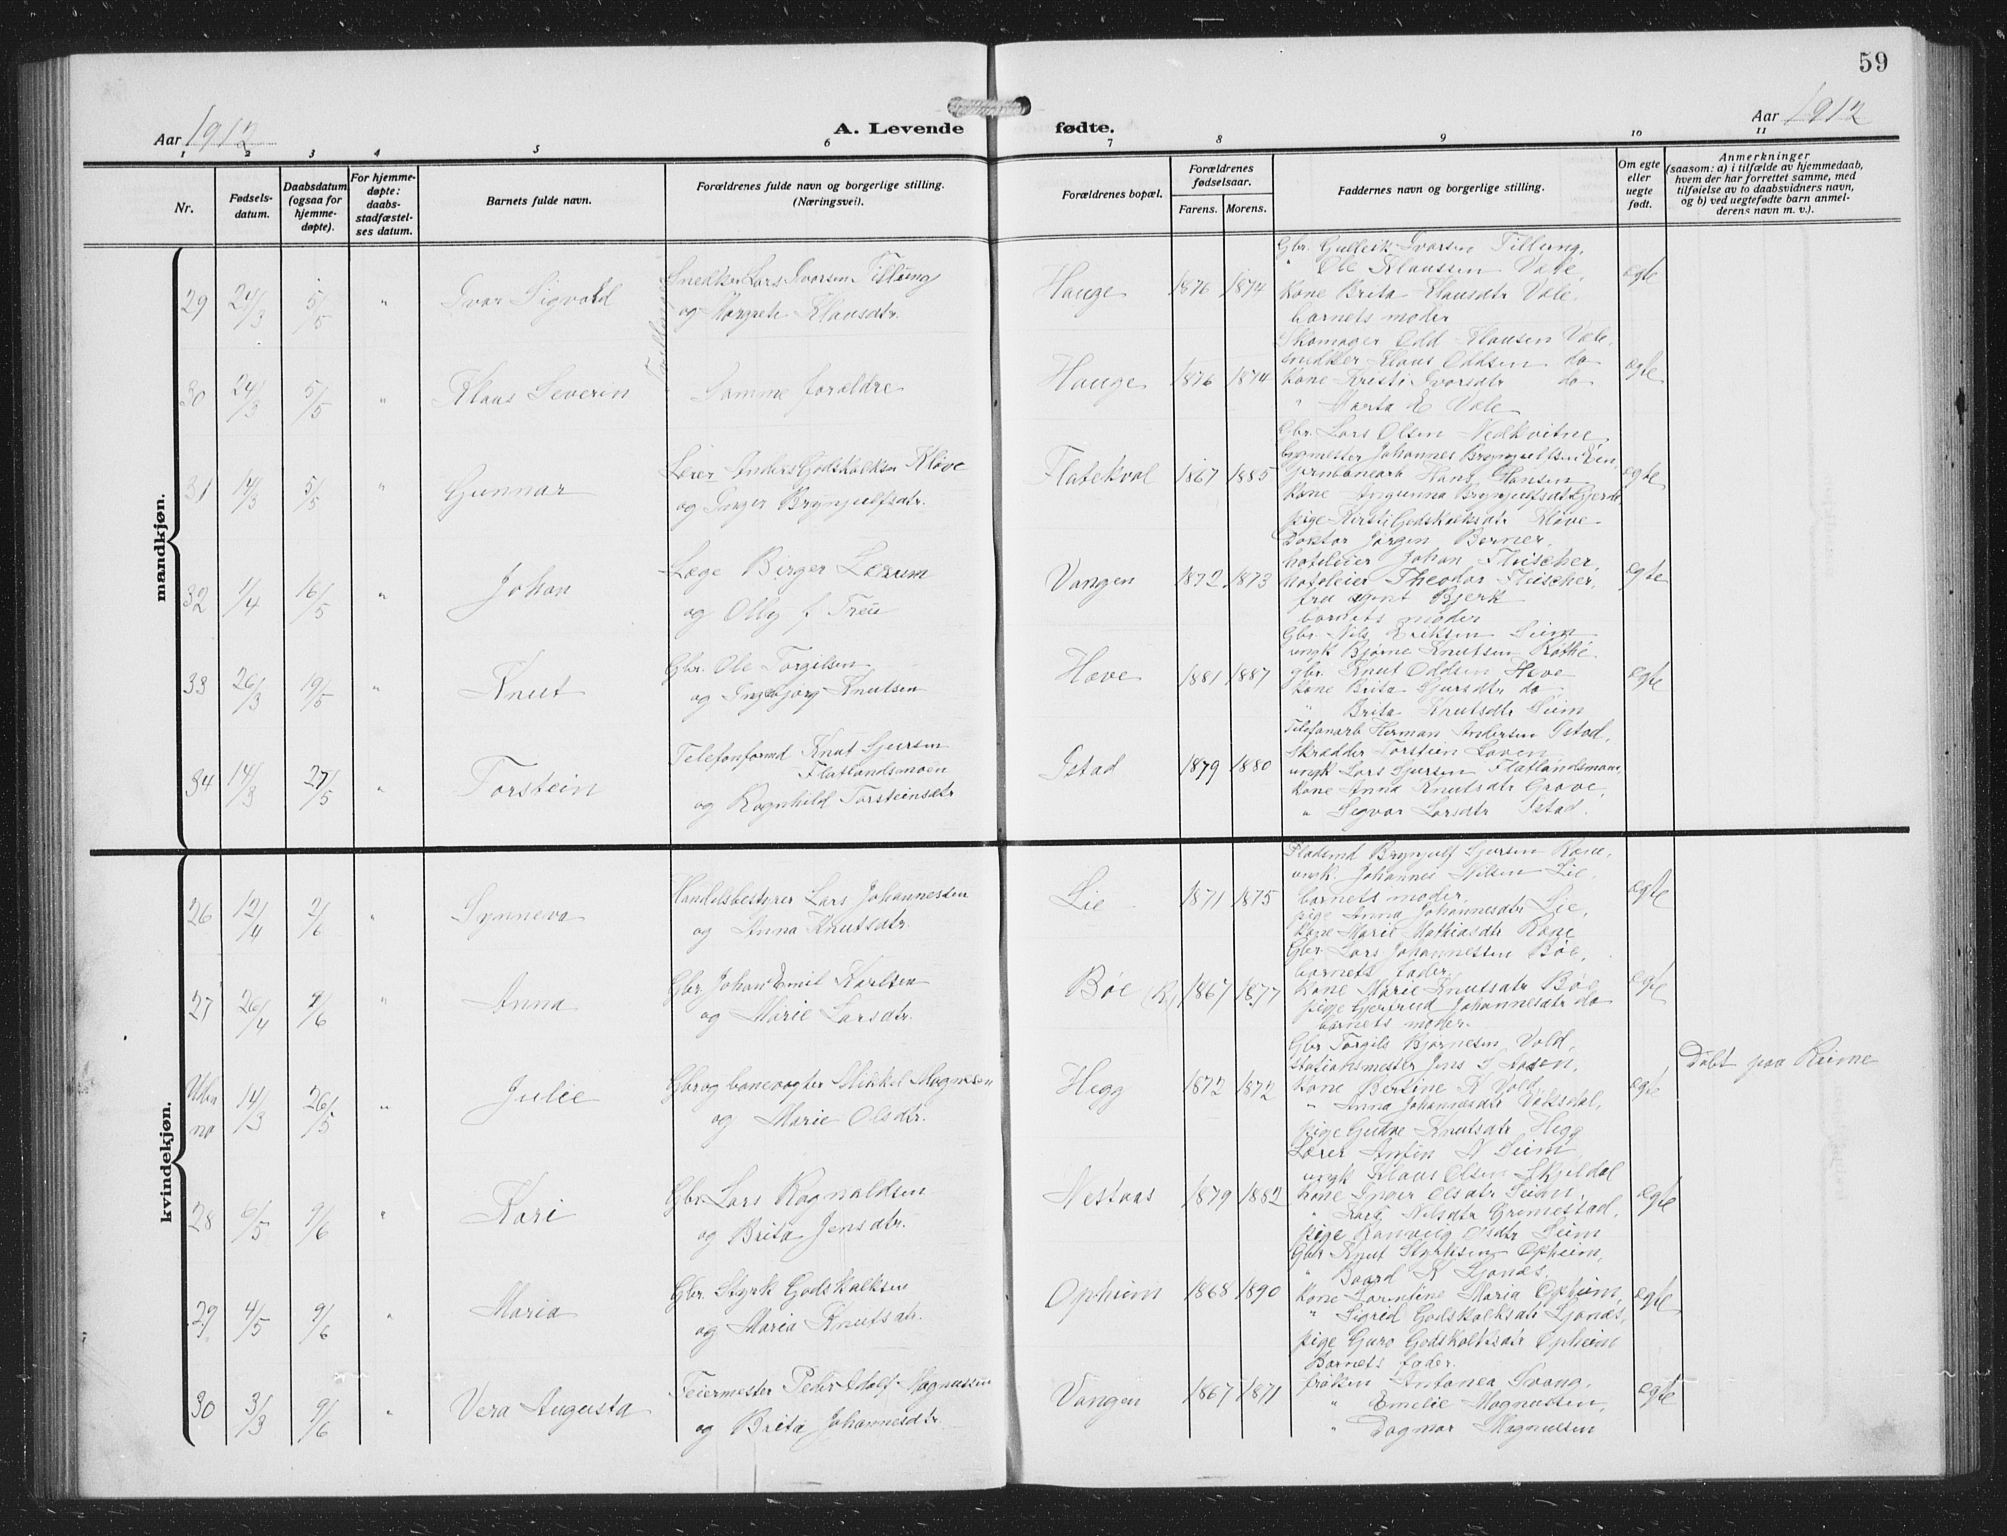 59
Aar 1912
A. Levende fødte.
Aar 1912
1 2 3 4 5 6 7 8 9 10 11
Nr.
Fødsels-
datum.
Daabsdatum
(ogsaa for
hjemme-
døpte).
For hjemme-
døpte:
daabs-
stadfæstel-
ses datum.
Barnets fulde navn.
Forældrenes fulde navn og borgerlige stilling.
(Næringsvei).
Forældrenes bopæl.
Forældrenes
fødselsaar.
Farens. Morens.
Faddernes navn og borgerlige stilling.
Om egte
eller
uegte
født.
Anmerkninger
(saasom: a) i tilfælde av hjemmedaab,
hvem der har forrettet samme, med
tilføielse av to daabsvidners navn,
og b) ved uegtefødte barn anmel-
derens navn m. v.).
mandkjøn.
29 24/3 5/5 " Ivar Sigvald
Snedker Lars Ivarsen Tillung
og Margrete Klausdtr.
Hauge 1876 1874
Gbr. Gulleik Ivarsen Tillung,
" Ole Klaussen Væle,
Kone Brita Klausdtr Væle,
barnets moder
egte
30 24/3 5/5 " Klaus Severin
Samme forældre
Hauge 1876 1874
Skomager Odd Klausen Væle,
snedker Klaus Oddsen do
Kone Kristi Ivarsdtr do
" Marta E Væle
egte
31 14/3 5/5 " Gunnar
Lærer Anders Godskalksen Kløve
og Inger Brynjulfsdtr.
Flatekval 1867 1885
Gbr. Lars Olsen Nedkvitne,
Johannes Brynjulfsen
Jernbanearb Hans Hansen
Kone Ingunna Brynjulfsdtr Gjerde
pige Kirsti Godskalksdtr Kløve
egte
32 1/4 16/5 " Johan
Læge Birger Lærum
og Olly f. Treu
Vangen 1872 1873
Doktor Jørgen Berner,
hoteleier Johan Fleischer,
hoteleier Theodor Fleischer,
fru Bjerk
barnets moder
egte
33 26/3 19/5 " Knut
Gbr. Ole Torgilsen
og Ingebjørg Knutsen
Hæve 1881 1887
Gbr. Nils Eriksen Seim
ungk Bjørne Knutsen Rothe
gbr Knut Oddsen Hæve
Kone Brita Sjursdtr do
" Brita Knutsdtr Seim
egte
34 14/3 27/5 " Torstein
Telefonformd Knut Sjursen
Flatlandsmoen
og Ragnhild Torsteinsdtr
Istad 1879 1880
Telefonarb Herman Andersen Istad,
Skrædder Torstein Loven
ungk Lars Sjursen Flatlandsmoen,
Kone Anna Knutsdtr Grove,
" Sigvor Larsdtr Istad.
egte
kvindekjøn.
26 12/4 2/6 " Synneva
Handelsbestyrer Lars Johannessen
og Anna Knutsdtr.
Lie 1871 1875
Brynjulf Sjursen Rone,
ungk. Johannes Nilsen Lie,
barnets moder,
pige Anna Johannesdtr Lie,
Kone Marie Mathiasdtr Rone
egte
27 26/4 9/6 " Anna
Gbr Johan Emil Karlsen
og Marie Larsdtr.
Bøe (R) 1867 1877
Gbr Lars Johannessen Bøe,
barnets fader,
Kone Marie Knutsdtr Bøe,
pige Gjertrud Johannesdtr do
barnets moder.
egte
14/3 26/5 " Julie
Gbr og banevogter Mikkel Magnesen
og Marie Olsdtr.
Hegg 1872 1872
Gbr Torgils Bjørnesen Vold,
Stationsmester Jens S Aasen,
Kone Bertine K Vold
" Anna Johannesdtr Vaksdal,
pige Gudve Knutsdtr Hegg
egte
Døbt paa Reime
28 6/5 9/6 " Kari
Gbr. Lars Ragnaldsen
og Brita Jensdtr.
Nestaas 1879 1882
Lærer Anfin N Seim
ungk Klaus Olsen Skjeldal
Kone Inger Olsdtr Seim,
" Kari Nilsdtr Grimestad,
pige Ranveig Olsdtr Seim
egte
29 4/5 9/6 " Maria
Gbr. Styrk Godskalksen
og Maria Knutsdtr.
Opheim 1868 1890
Gbr Knut Styrksen Opheim,
" Baard K Sjonæs,
Kone Sorentine Maria Opheim,
" Sigrid Godskalksdtr Sjonæs,
pige Guro Godskalksdtr Opheim
egte
30 3/3 9/6 " Vera Augusta
Feiermester Peder Adolf Magnussen
og Brita Johannesdtr.
Vangen 1867 1871
Barnets fader.
frøken Antonea Svang,
" Emelie Magnussen,
" Dagmar Magnussen
egte